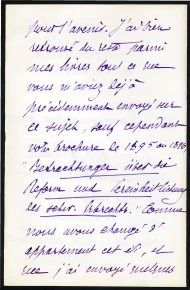 pour l'avenir. J'ai bien
retrouvé du reste parmi
mes livres tout ce que
vous m'aviez déjà
précédemment envoyé sur
ce sujet, sauf cependant
votre brochure de 1895 ou 1896
"Betrachtungen über die
Reform und Vereinheitlichung
des schw. Strafrechts". Comme
nous avons changé d'
appartement cet été, et
que j'ai envoyé quelques